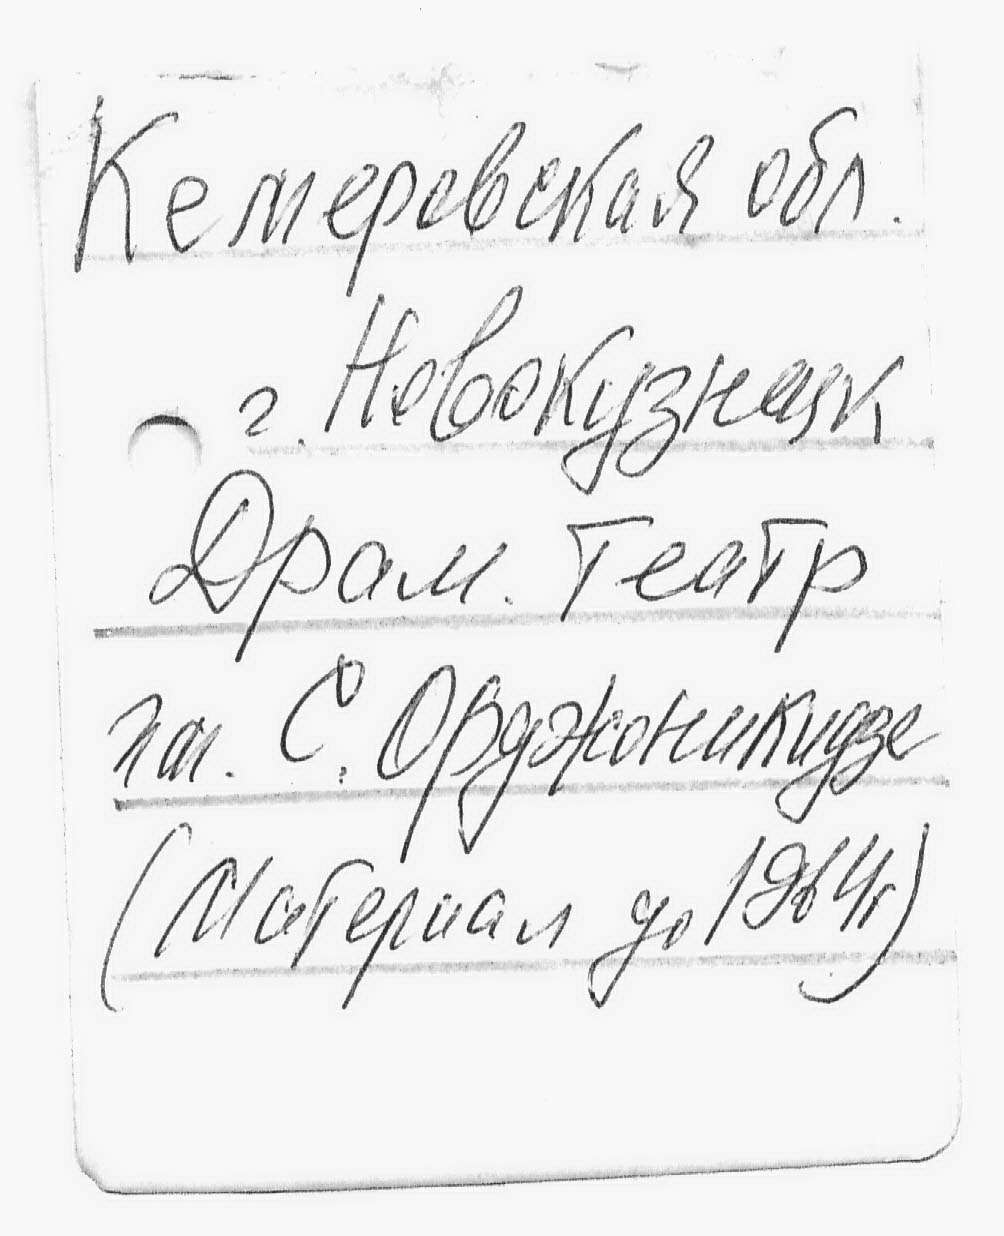 Кемеровская обл.
г. Новокузнецк
Драм. театр
им. С. Орджоникидзе
(Материал до 1964г)